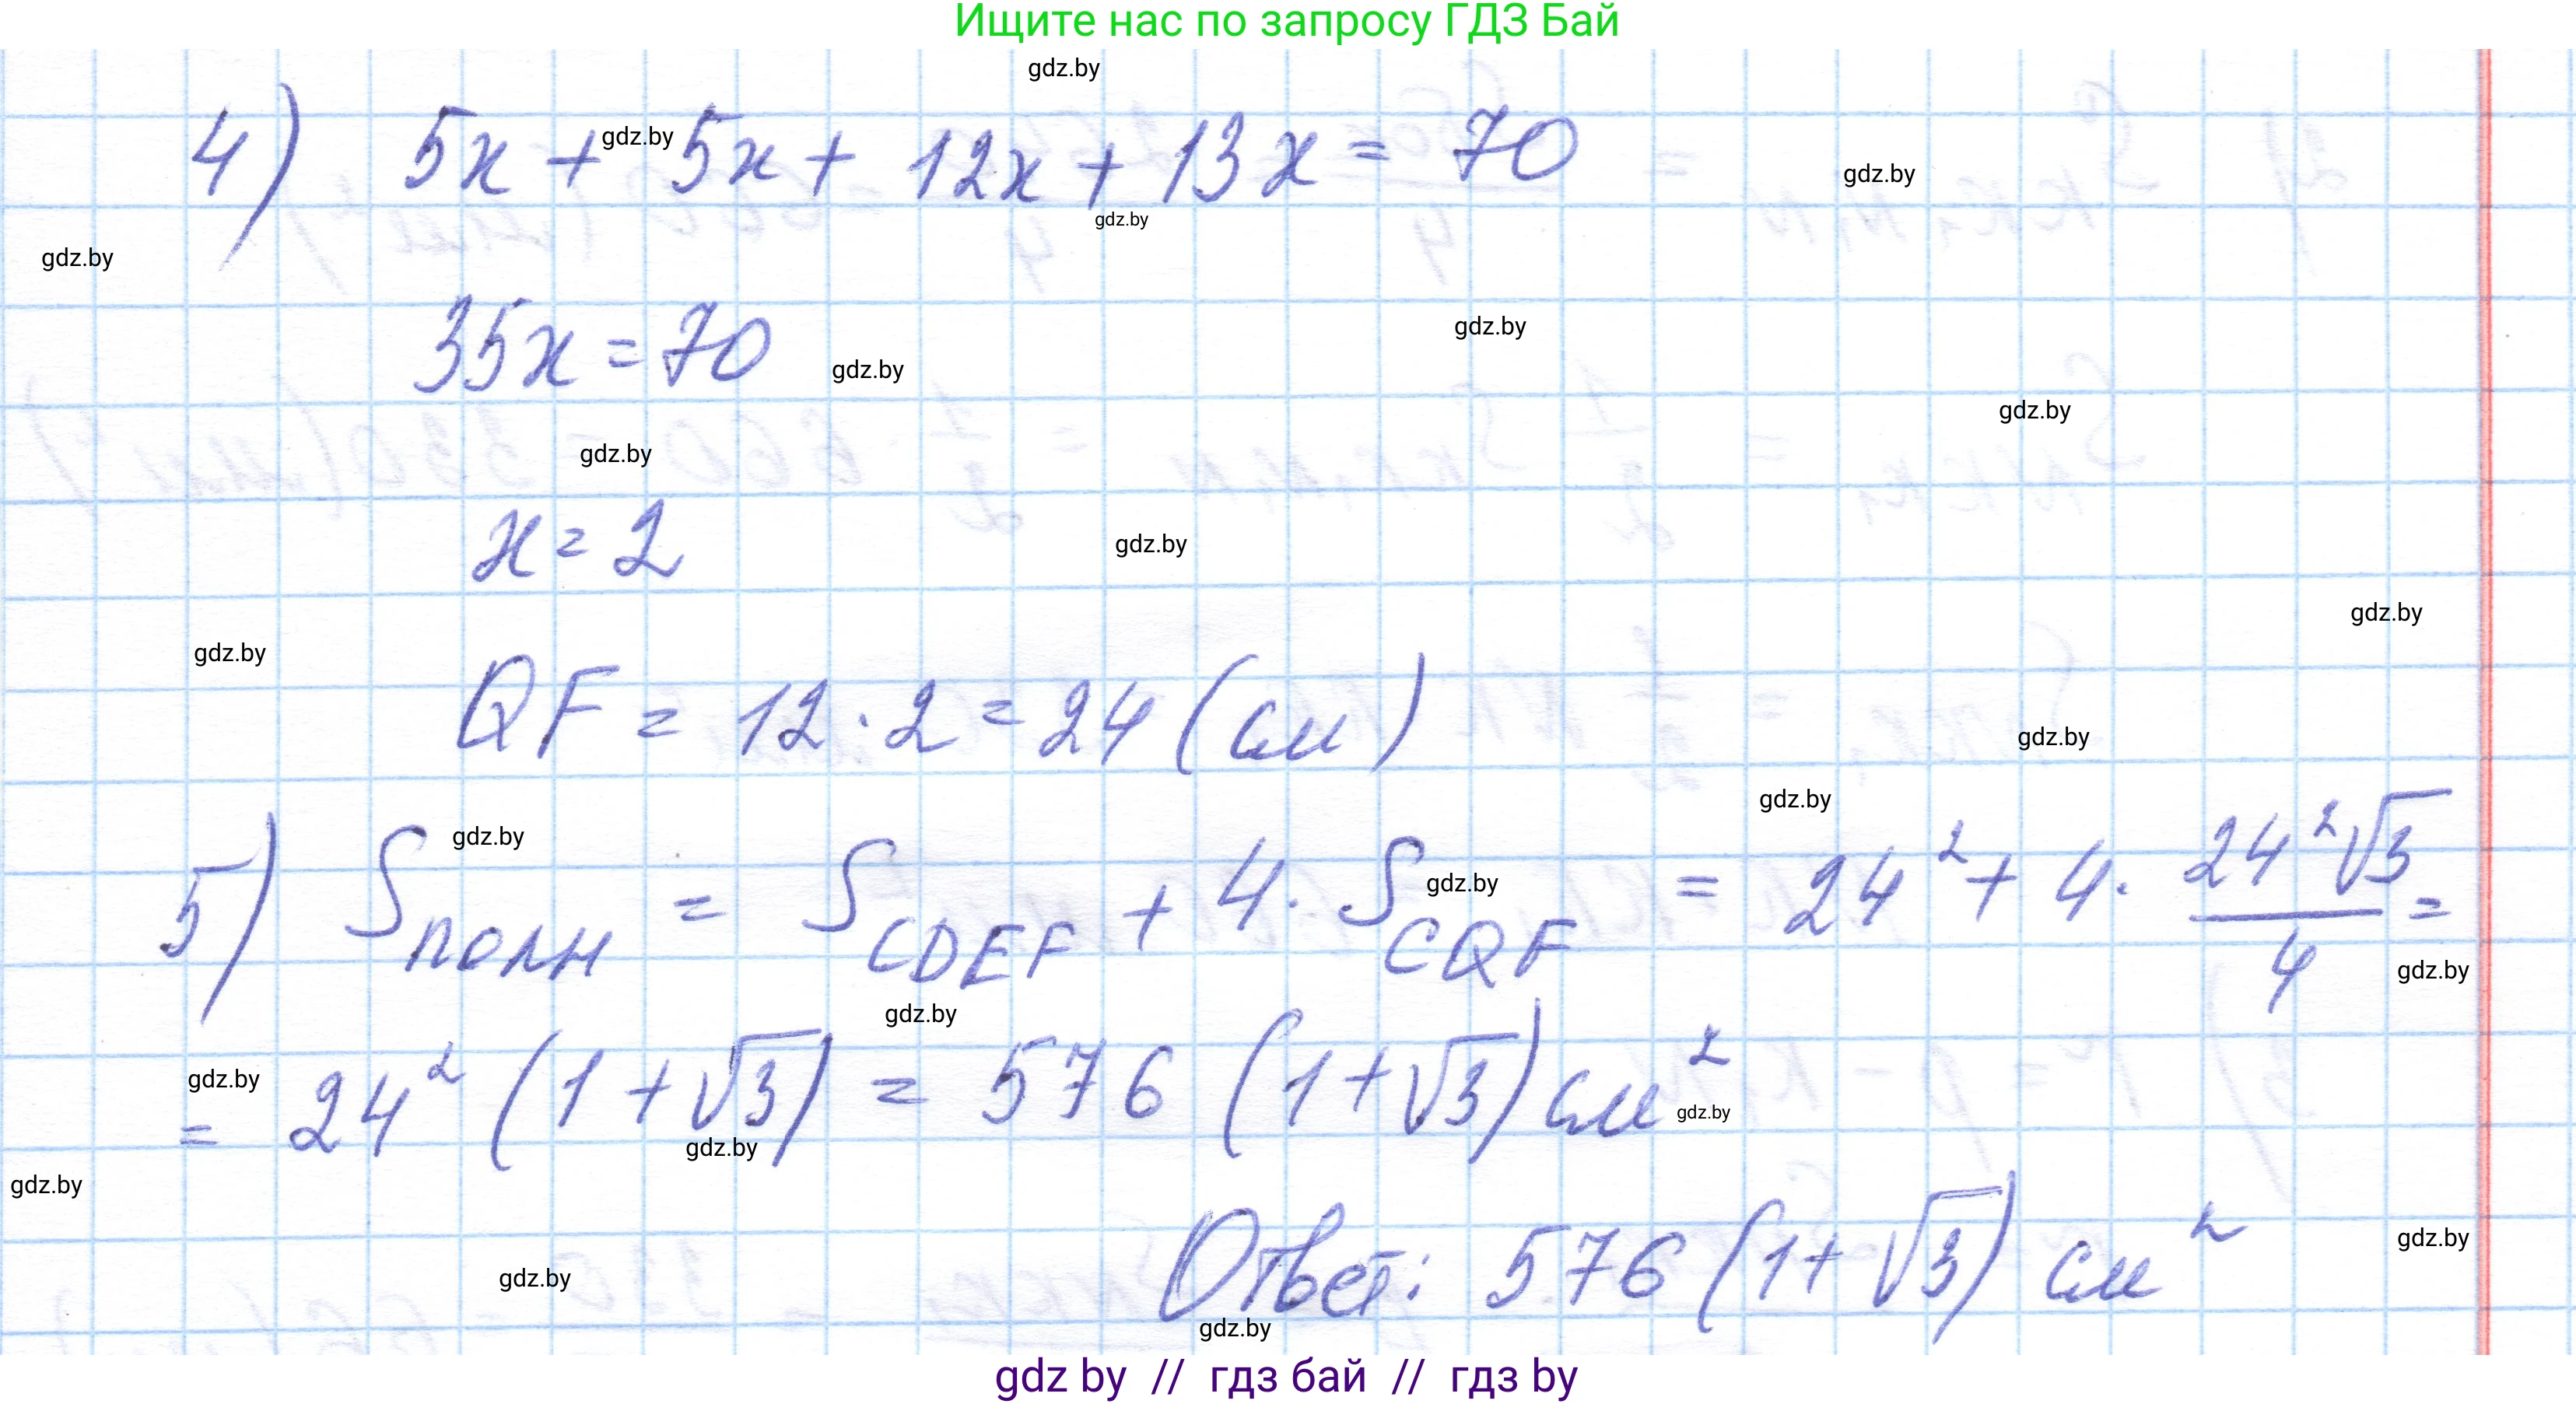 Ищите нас по запросу ГДЗ Бай
gdz.by
4) 5x + 5x + 12x + 13x = 70
gdz.by
gdz.by
gdz.by
gdz.by
gdz.by
35x = 70
gdz.by
gdz.by
gdz.by
x = 2
gdz.by
gdz.by
gdz.by
QF = 12 · 2 = 24 (см)
gdz.by
gdz.by
gdz.by
5) Sполн = SCDEF + 4 · SCQF = 24² + 4 · 24²√3/4 =
gdz.by
gdz.by
gdz.by
gdz.by
= 24² (1 + √3) = 576 (1 + √3) см²
gdz.by
gdz.by
gdz.by
Ответ: 576 (1 + √3) см²
gdz.by
gdz.by
gdz.by
gdz by // гдз бай // гдз by